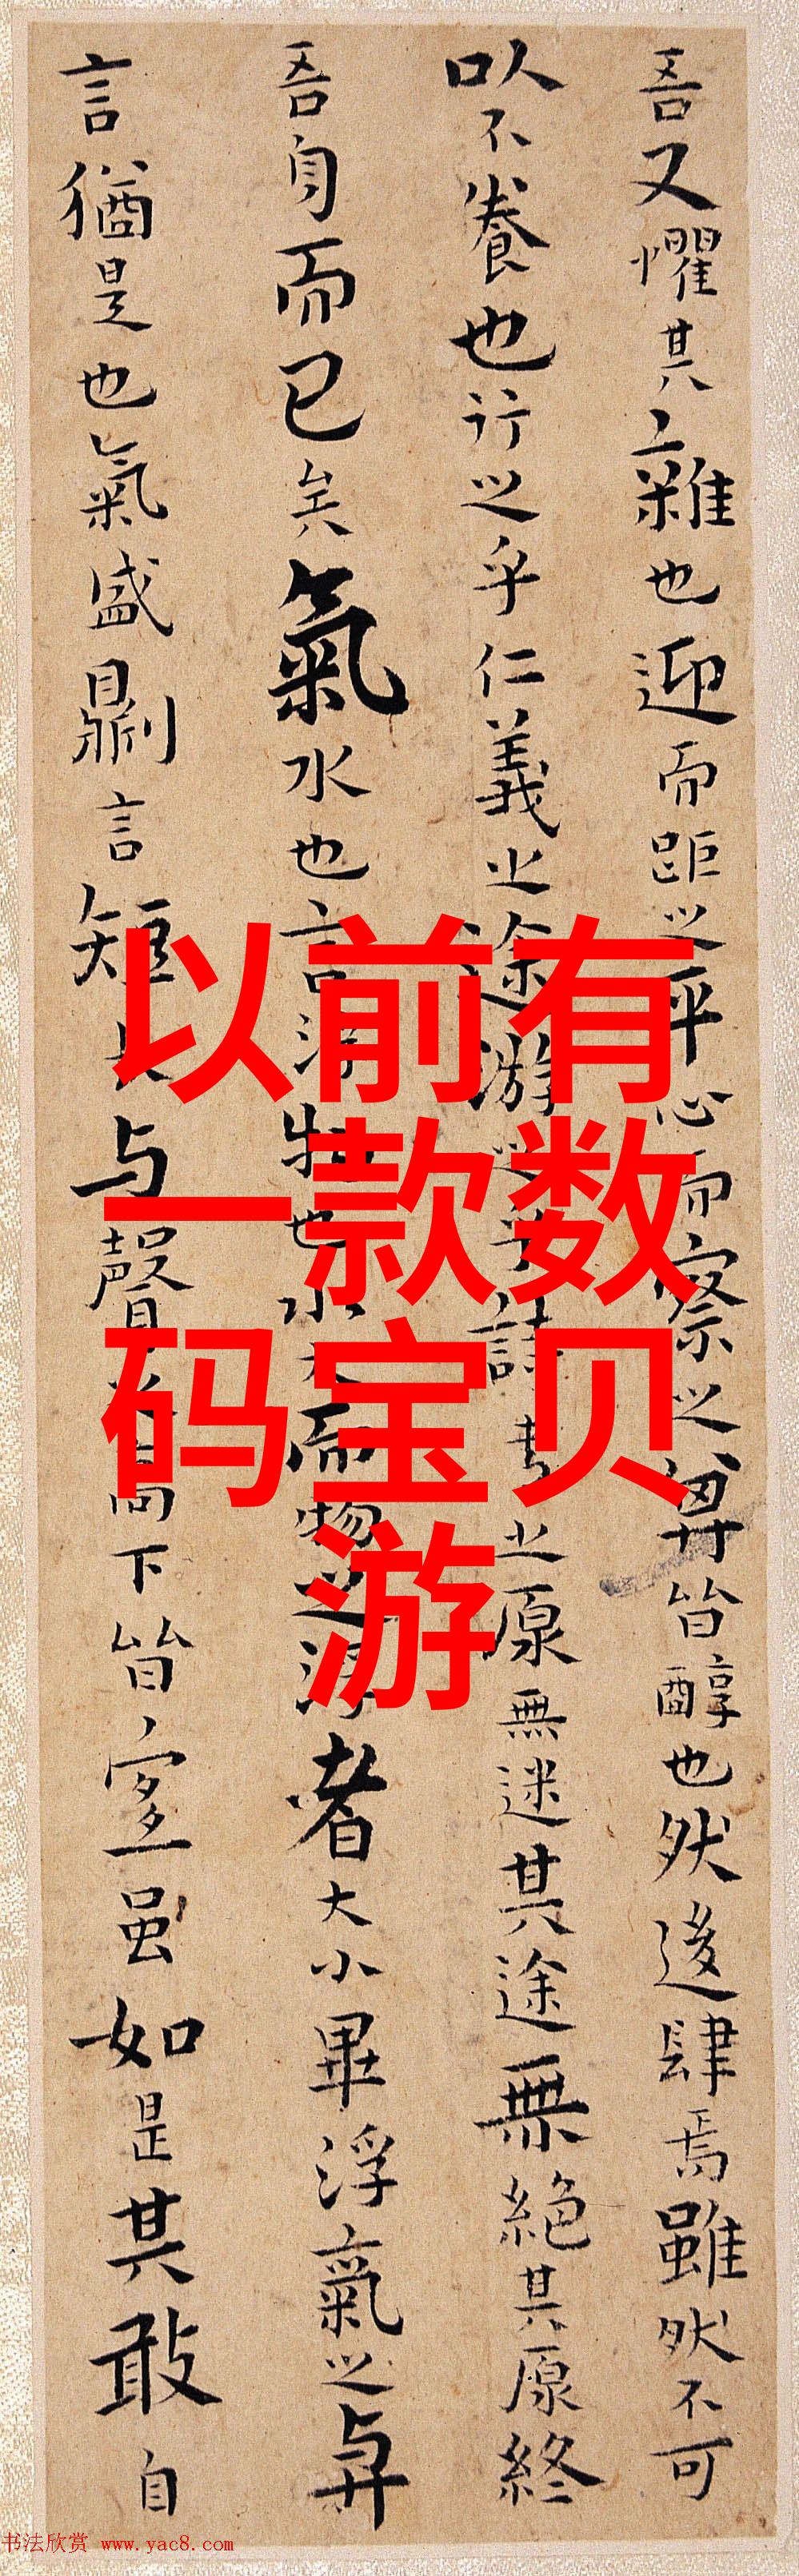 吾又懼其雜也迎而距之平心而察之其皆醇也然後肆焉雖然不可
以不養也行之乎仁義之途游之乎詩書之原無迷其途無絕其原終
吾身而已矣氣水也言浮物也水大而物之浮者大小畢浮氣之與
言猶是也氣盛則言短長與聲之高下皆宜雖如是其敢自
以前有
一款数
码宝贝
游
书法欣赏 www.yac8.com